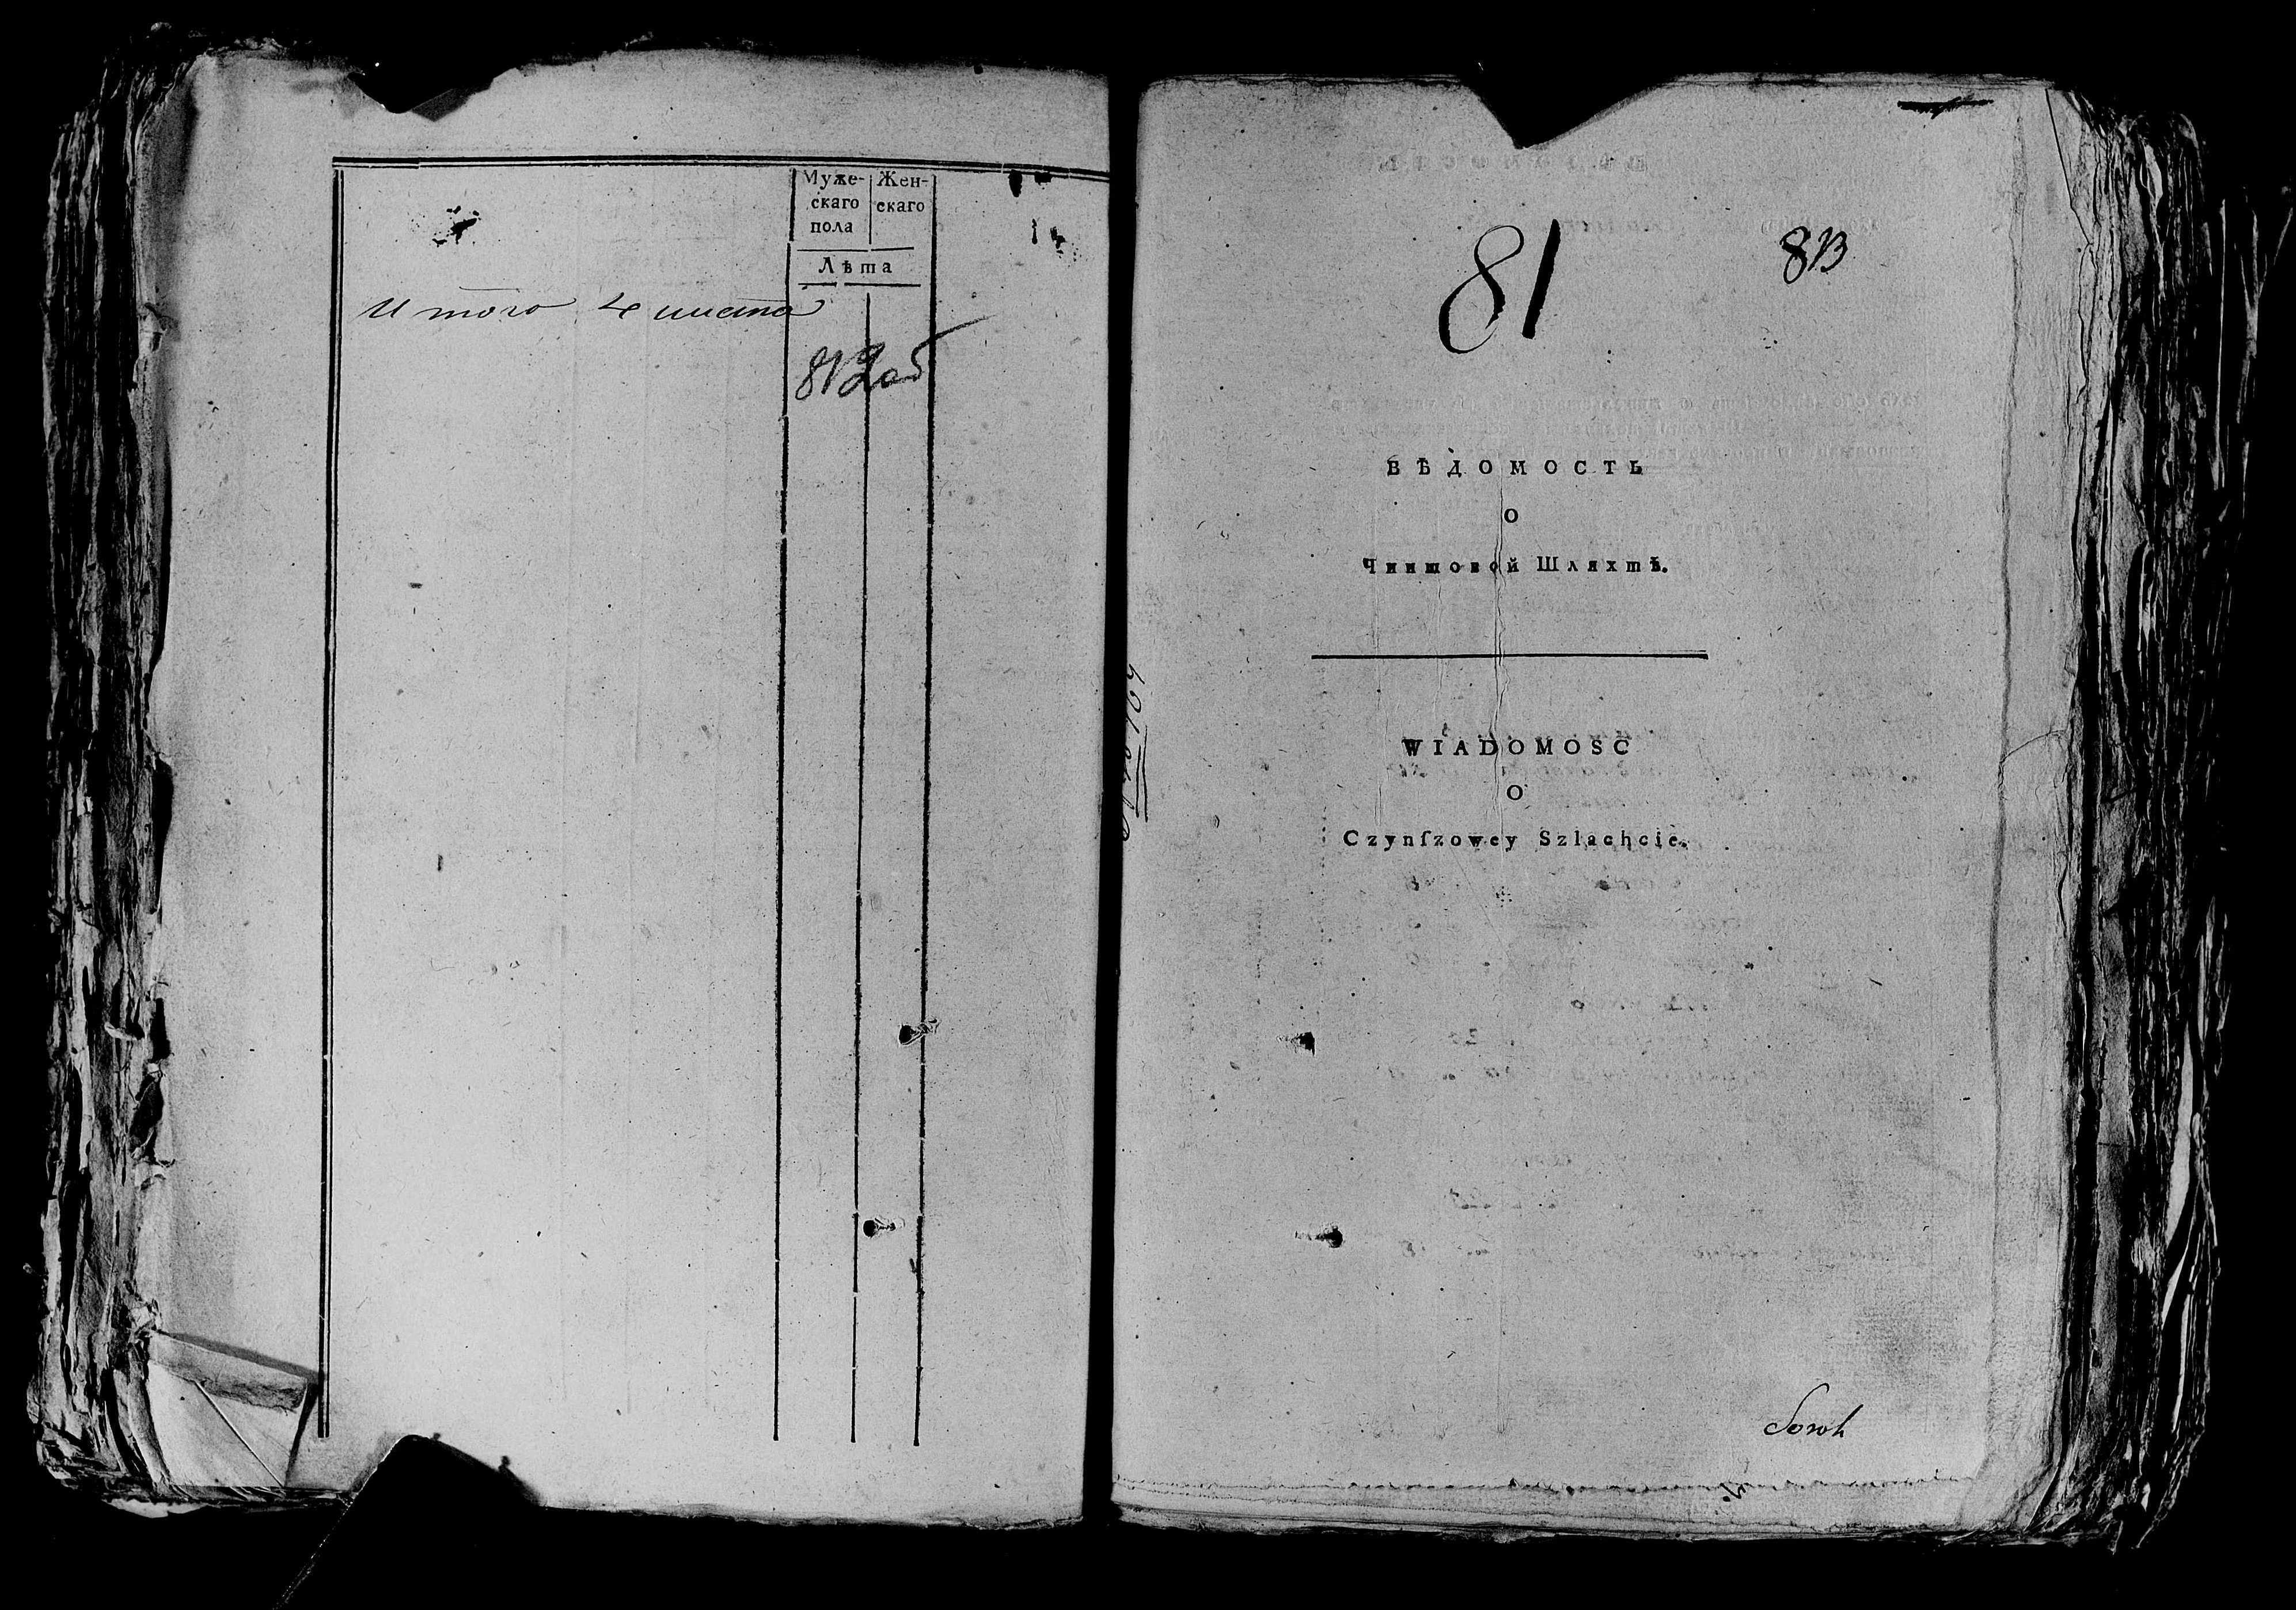 Муже-
скаго
пола
Жен-
скаго
Лѣта
Итого 4 листа
812об
81
813
ВѢДОМОСТЬ
О
Чиншовой Шляхтѣ.
WIADOMOSC
O
Czynſzowey Szlachcie.